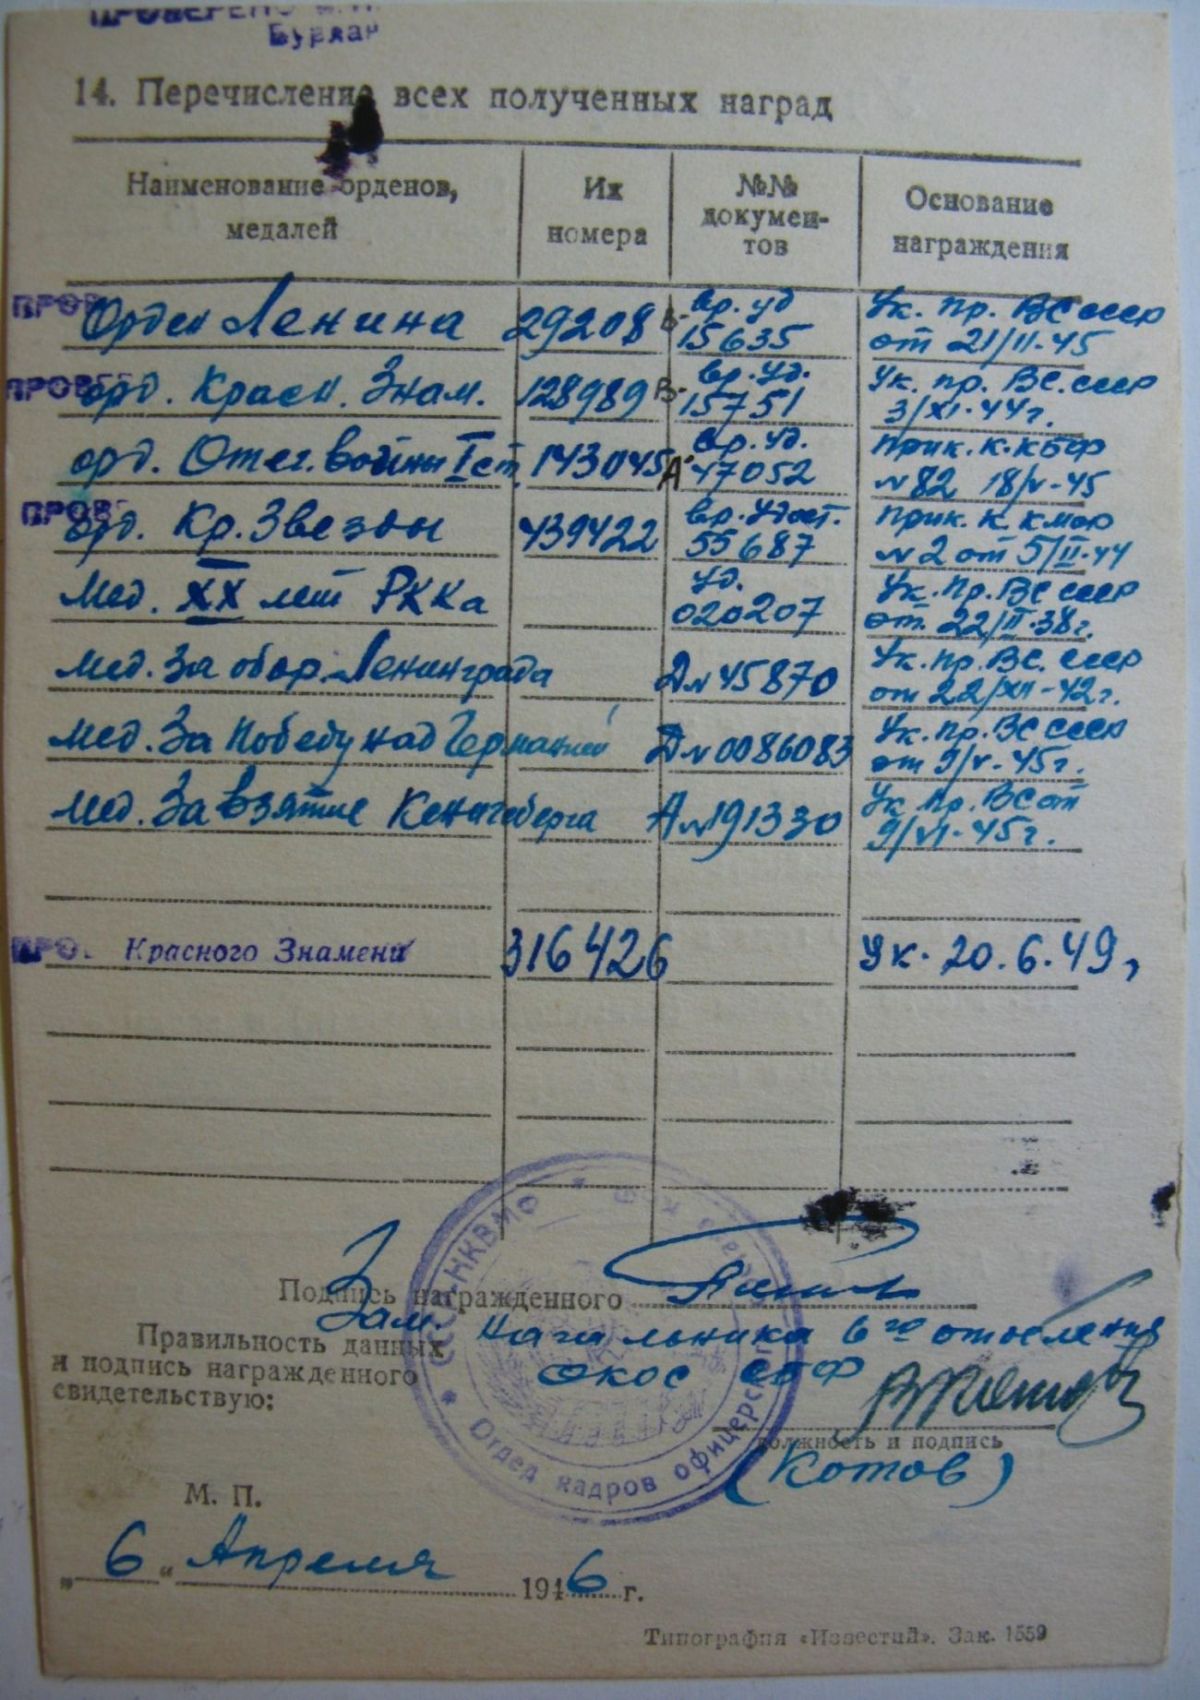 ПРОВЕРЕНО
Бурлак
14. Перечисление всех полученных наград
Наименование орденов, медалей
Их номера
№№ докумен-тов
Основание награждения
ПРОВ Орден Ленина 29208 В- вр. уд 15635 Ук. пр. ВС СССР от 21/II-45
ПРОВЕР орд. Красн. Знам. 128989 В- вр. уд. 15751 Ук. пр. ВС. СССР 3/XI-44г.
орд. Отеч. войны I ст. 143045 А- вр. уд. 47052 Прик. К. КБФ №82 18/V-45
ПРОВЕ орд. Кр. Звезды 439422 вр. удост. 55687 Прик. К. №2 от 5/II-44
Мед. XX лет РККА уд. 020207 Ук. Пр. ВС СССР от 22/II-38г.
Мед. За обор. Ленинграда Д№45870 Ук. пр. ВС. СССР от 22/XII-42г.
Мед. За Победу над Германией Д№0086083 Ук. пр. ВС СССР от 9/V-45г.
Мед. За взятие Кенигсберга А№191330 Ук. пр. ВС от 9/VI-45г.
ПРО. Красного Знамени 316426 Ук. 20.6.49,
Подпись награжденного
Правильность данных и подпись награжденного свидетельствую:
Зам. Начальника 6го отделения
ОКОС КБФ
должность и подпись
(Котов)
СССР НКВМФ
Отдел кадров офицерск
М. П.
„6“ Апреля 1946 г.
Типография «Известий». Зак. 1559